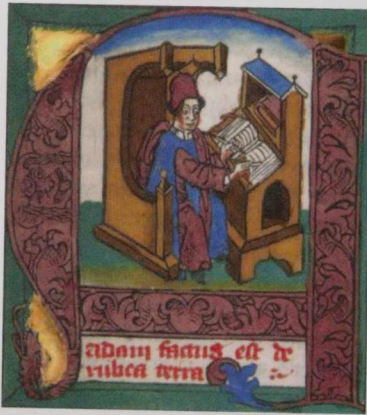 adam factus est de
rubea terra